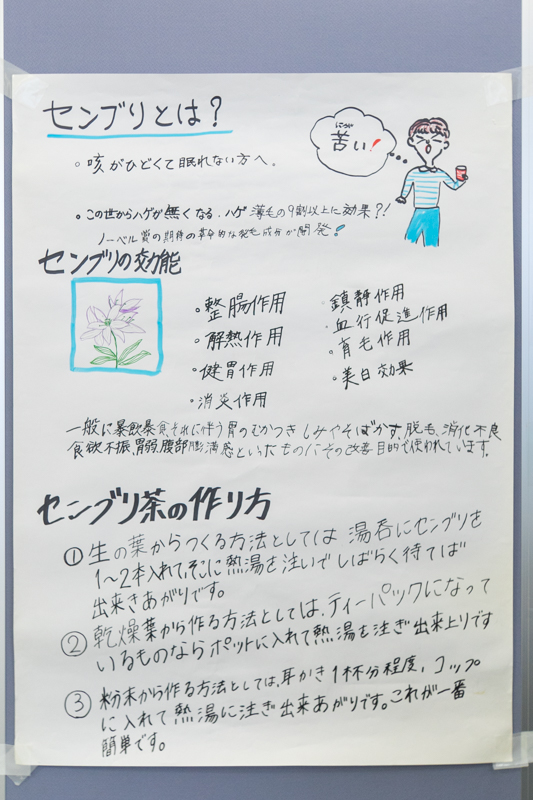 センブリとは？
にが
苦い！
。咳がひどくて眠れない方へ。
• この世からハゲが無くなる。ハゲ 薄毛の9割以上に効果？！
ノーベル賞の期待の革命的な発毛成分が開発！
センブリの効能
・整腸作用
・解熱作用
・健胃作用
・消炎作用
鎮静作用
・血行促進作用
・育毛作用
・美白効果
一般に暴飲暴食、それに伴う胃のむかつき しみやそばかす、脱毛、消化不良
食欲不振、胃弱、腹部膨満感といったものにその改善目的で使われています。
センブリ茶の作り方
①生の葉からつくる方法としては 湯呑にセンブリを
1〜2本入れて、そこに熱湯を注いでしばらく待てば
出来きあがりです。
②乾燥葉から作る方法としては、ティーパックになって
いるものならポットに入れて熱湯を注ぎ出来上りです
③粉末から作る方法としては、耳かき1杯分程度、コップ
に入れて熱湯に注ぎ出来あがりです。これが一番
簡単です。